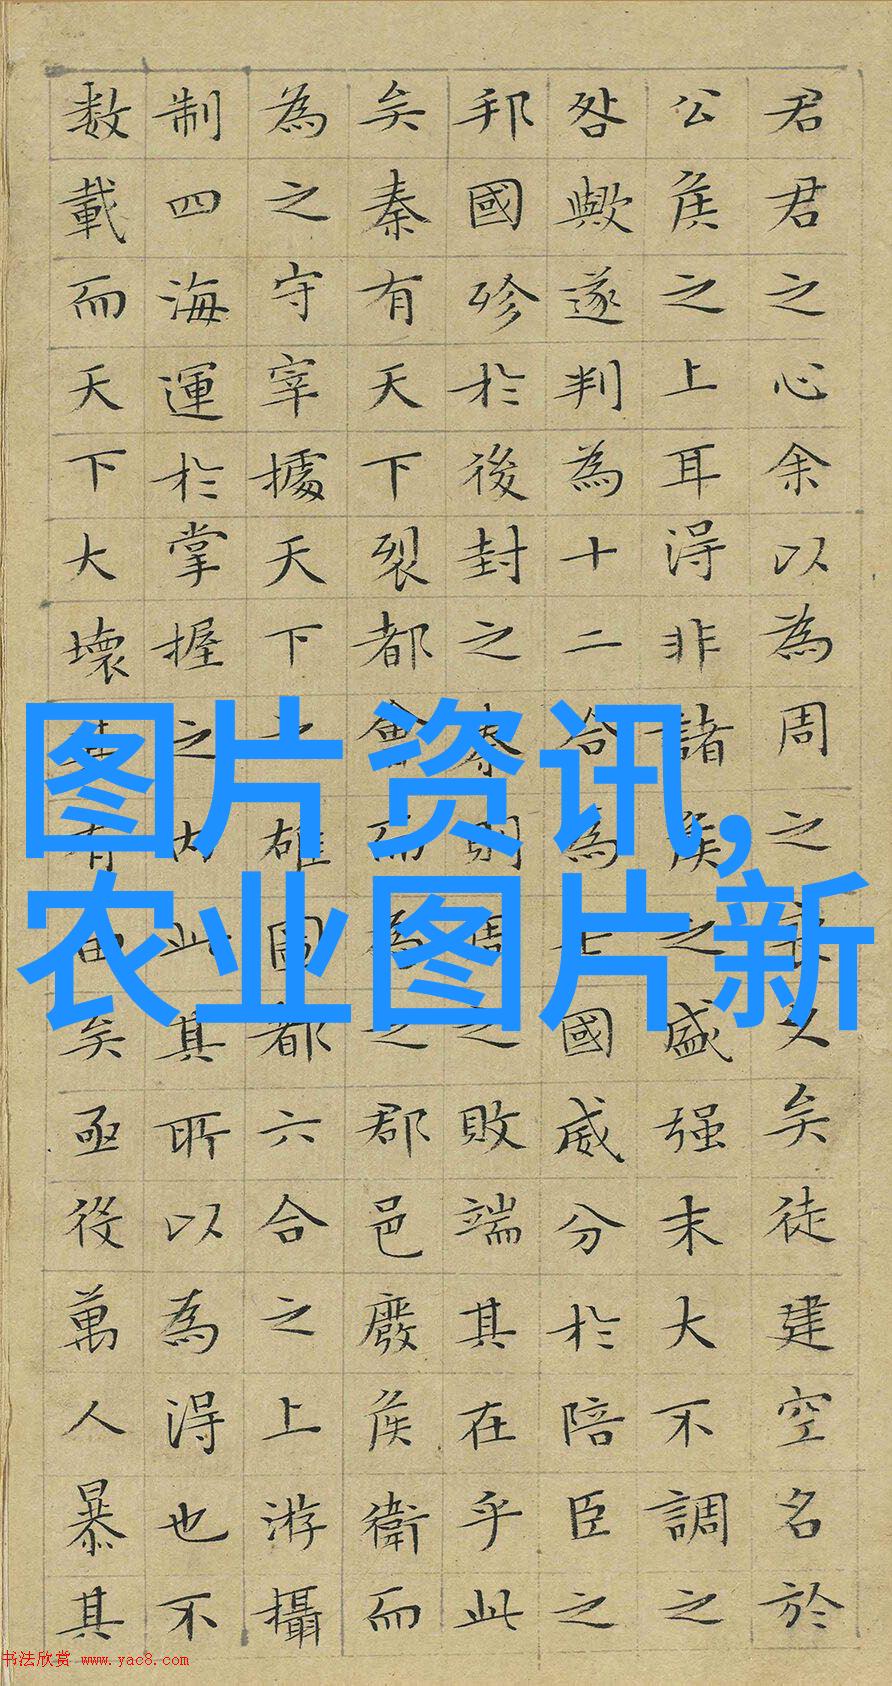 君君之心余以為周之喪久矣徒建空名於
公侯之上耳得非諸侯之盛强末大不調之
咎歟遂判為十二合為七國威分於陪臣之
邦國殄於後封之秦則周之敗端其在乎此
矣秦有天下裂都會而為之郡邑廢侯衛而
為之守宰據天下之雄圖都六合之上游攝
制四海運於掌握之内此其所以為得也不
数載而天下大壞其有由矣亟役萬人暴其
图片资讯,
农业图片新
书法欣赏 www.yac8.com